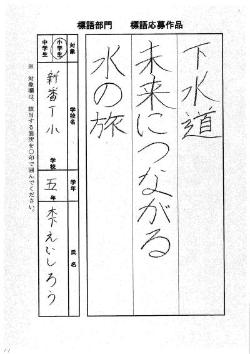 標語部門　標語応募作品
下水道
未来につながる
水の旅
対象
小学生
中学生
学校名
新番丁小
学校
学年
五年
氏名
えいしろう
※対象欄は、該当する箇所を○印で囲んでください。